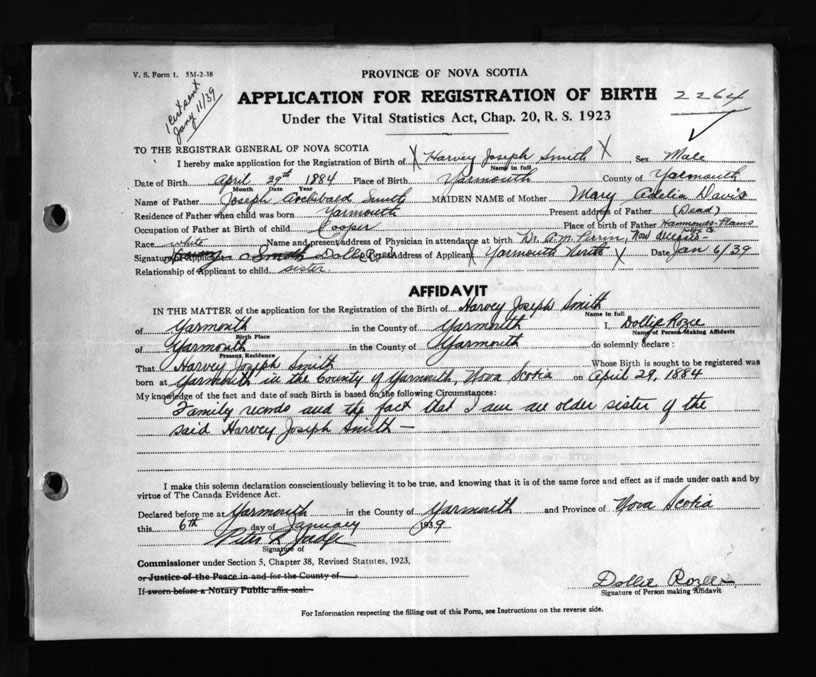 V. S. Form 1. 5M-2-38
PROVINCE OF NOVA SCOTIA
1 Cert sent
Jany 11/39
APPLICATION FOR REGISTRATION OF BIRTH 2264
Under the Vital Statistics Act, Chap. 20, R. S. 1923
TO THE REGISTRAR GENERAL OF NOVA SCOTIA
I hereby make application for the Registration of Birth of X Harvey Joseph Smith X Sex Male
Name in full
Date of Birth April 29th 1884 Place of Birth Yarmouth County of Yarmouth
Month Date Year
Name of Father Joseph Archibald Smith MAIDEN NAME of Mother Mary Adelia Davis
Residence of Father when child was born Yarmouth Present address of Father (Dead)
Occupation of Father at Birth of child Cooper Place of birth of Father Hammonds Plains
Race white Name and present address of Physician in attendance at birth Dr. A. M. Perrin, Now
Signature of Applicant Smith Dollie Address of Applicant X Yarmouth North X Date Jan 6/39
Relationship of Applicant to child sister
AFFIDAVIT
IN THE MATTER of the application for the Registration of the Birth of Harvey Joseph Smith
Name in full
of Yarmouth in the County of Yarmouth I, Dollie Rozee
Birth Place Name of Person Making Affidavit
of Yarmouth in the County of Yarmouth do solemnly declare :
Present Residence
That Harvey Joseph Smith Whose Birth is sought to be registered was
born at Yarmouth in the County of Yarmouth, Nova Scotia on April 29, 1884
My knowledge of the fact and date of such Birth is based on the following Circumstances:
Family records and the fact that I am an older sister of the
said Harvey Joseph Smith —
I make this solemn declaration conscientiously believing it to be true, and knowing that it is of the same force and effect as if made under oath and by
virtue of The Canada Evidence Act.
Declared before me at Yarmouth in the County of Yarmouth and Province of Nova Scotia
this 6th day of January 1939
Peter R. Judge
Signature of
Commissioner under Section 5, Chapter 38, Revised Statutes, 1923,
or Justice of the Peace in and for the County of
If sworn before a Notary Public affix seal.
Dollie Rozee
Signature of Person making Affidavit
For Information respecting the filling out of this Form, see Instructions on the reverse side.